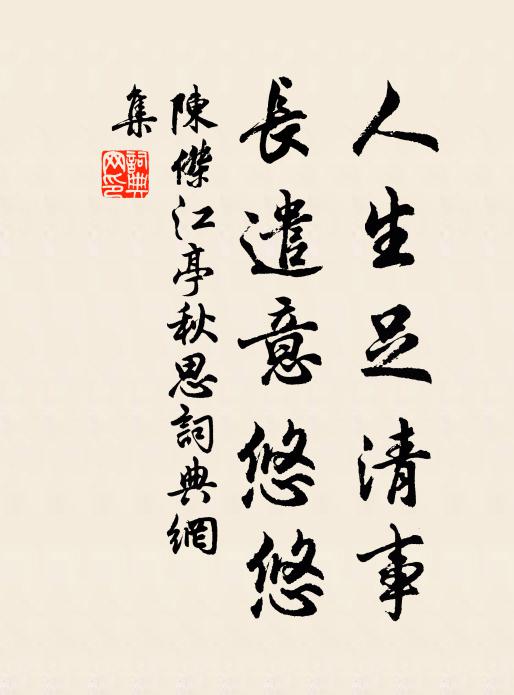 人生足清事
長遣意悠悠
陳傑江亭秋思詞典網
集
詞典
网印